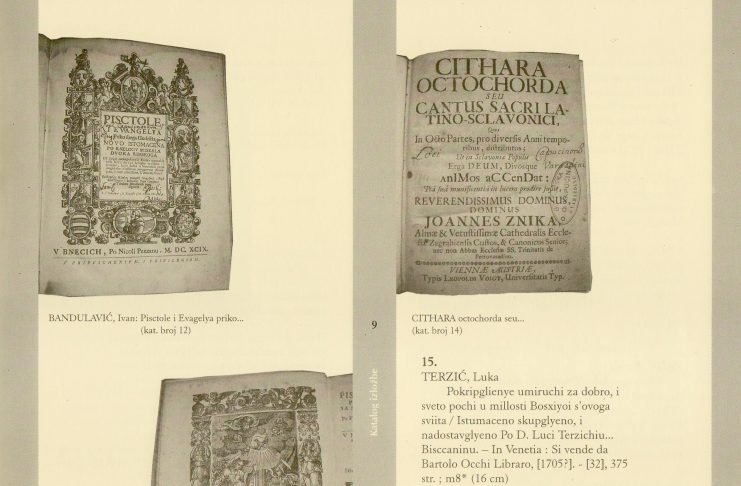 PISCTOLE,
I EVANGELYA
NOVO ISTOMACENA
PO RAZLOGU MISSALA
DVORA RIMSKOGA
V BNECICH, Po Nicoli Pezzanu, M. DC. XCIX.
BANDULAVIĆ, Ivan: Pisctole i Evagelya priko...
(kat. broj 12)
9
Katalog izložbe
CITHARA
OCTOCHORDA
SEU
CANTUS SACRI LA-
TINO-SCLAVONICI,
In Octo Partes, pro diversis Anni tempo-
ribus, distributus;
Erga DEUM, Divosque
ANIMos aCCenDat;
REVERENDISSIMUS DOMINUS,
DOMINUS
JOANNES ZNIKA,
Almæ & Vetustissimæ Cathedralis Eccle-
siæ Zagrabiensis Custos, & Canonicus Senior;
nec non Abbas Ecclesiæ SS. Trinitatis de
VIENNÆ AUSTRIÆ,
Typis LEOPOLDI VOIGT, Universitatis Typ.
CITHARA octochorda seu...
(kat. broj 14)
15.
TERZIĆ, Luka
Pokripglienye umiruchi za dobro, i
sveto pochi u millosti Bosxiyoi s'ovoga
sviita / Istumaceno skupglyeno, i
nadostavglyeno Po D. Luci Terzichiu...
Bisccaninu. – In Venetia : Si vende da
Bartolo Occhi Libraro, [1705?]. - [32], 375
str. ; m8* (16 cm)